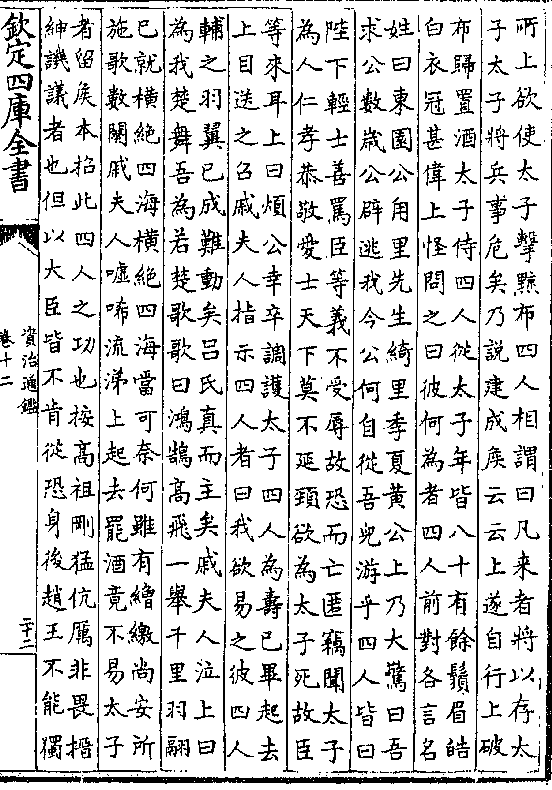 所上欲使太子擊黥布四人相謂曰凡來者將以存太
子太子將兵事危矣乃説建成矦云云上遂自行上破
布歸置酒太子侍四人從太子年皆八十有餘鬚眉皓
白衣冠甚偉上怪問之曰彼何為者四人前對各言名
姓曰東園公用里先生綺里季夏黄公上乃大驚曰吾
求公數嵗公辟逃我今公何自從吾兒游乎四人皆曰
陛下輕士善罵臣等義不受辱故恐而亡匿竊聞太子
為人仁孝恭敬愛士天下莫不延頸欲為太子死故臣
等來耳上曰煩公幸卒調護太子四人為壽已畢起去
上目送之召戚夫人指示四人者曰我欲易之彼四人
輔之羽翼已成難動矣吕氏真而主矣戚夫人泣上曰
為我楚舞吾為若楚歌歌曰鴻鵠高飛一舉千里羽翮
已就横絶四海横絶四海當可奈何雖有繒繳尚安所
施歌數闋戚夫人嘘唏流涕上起去罷酒竟不易太子
者留矦本招此四人之功也按高祖剛猛伉厲非畏搢
紳譏議者也但以大臣皆不肯從恐身後趙王不能獨
欽定四庫全書
資治通鑑
卷十二
二十二